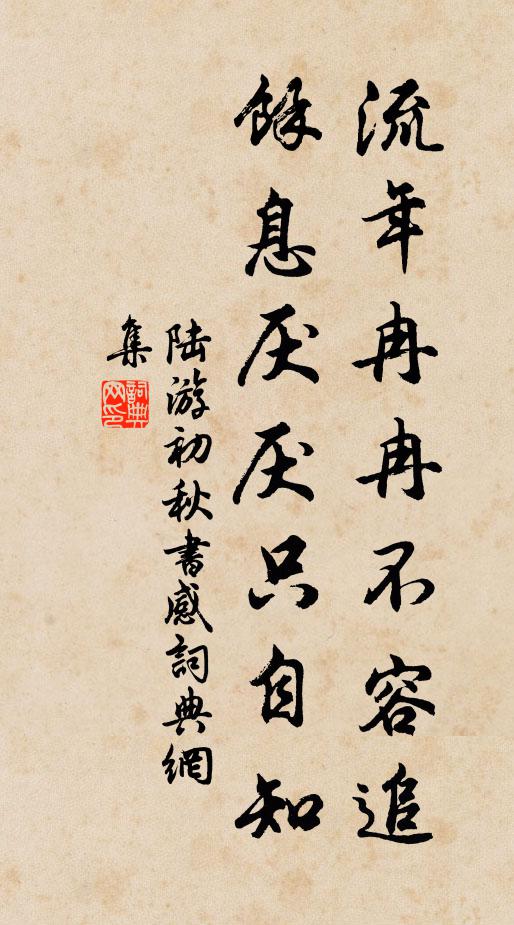 流年冉冉不容追
餘息厌厌只自知
陆游初秋書感詞典網
集
詞典
网印